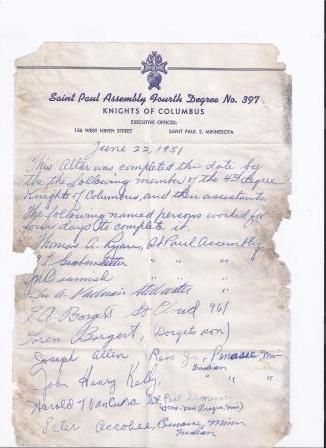 Saint Paul Assembly Fourth Degree No. 397
KNIGHTS OF COLUMBUS
EXECUTIVE OFFICES:
156 WEST NINTH STREET SAINT PAUL 2, MINNESOTA
June 22, 1951
This Altar was completed this date by
the following member of the 4th degree
Knights of Columbus, and their assistants.
The following named persons worked for
four days to complete it.
Thomas A. St Paul Assembly
" " "
" "
A. Stillwater "
Borgert St Cloud 961
Loren Borgert, (Borgerts son)
Joseph Allen Race Jr, Ponasse, Minn
Indian
John Henry Kelly, " " "
Harold T Van St Paul
Peter Accobee, Ponasse, Minn
Indian